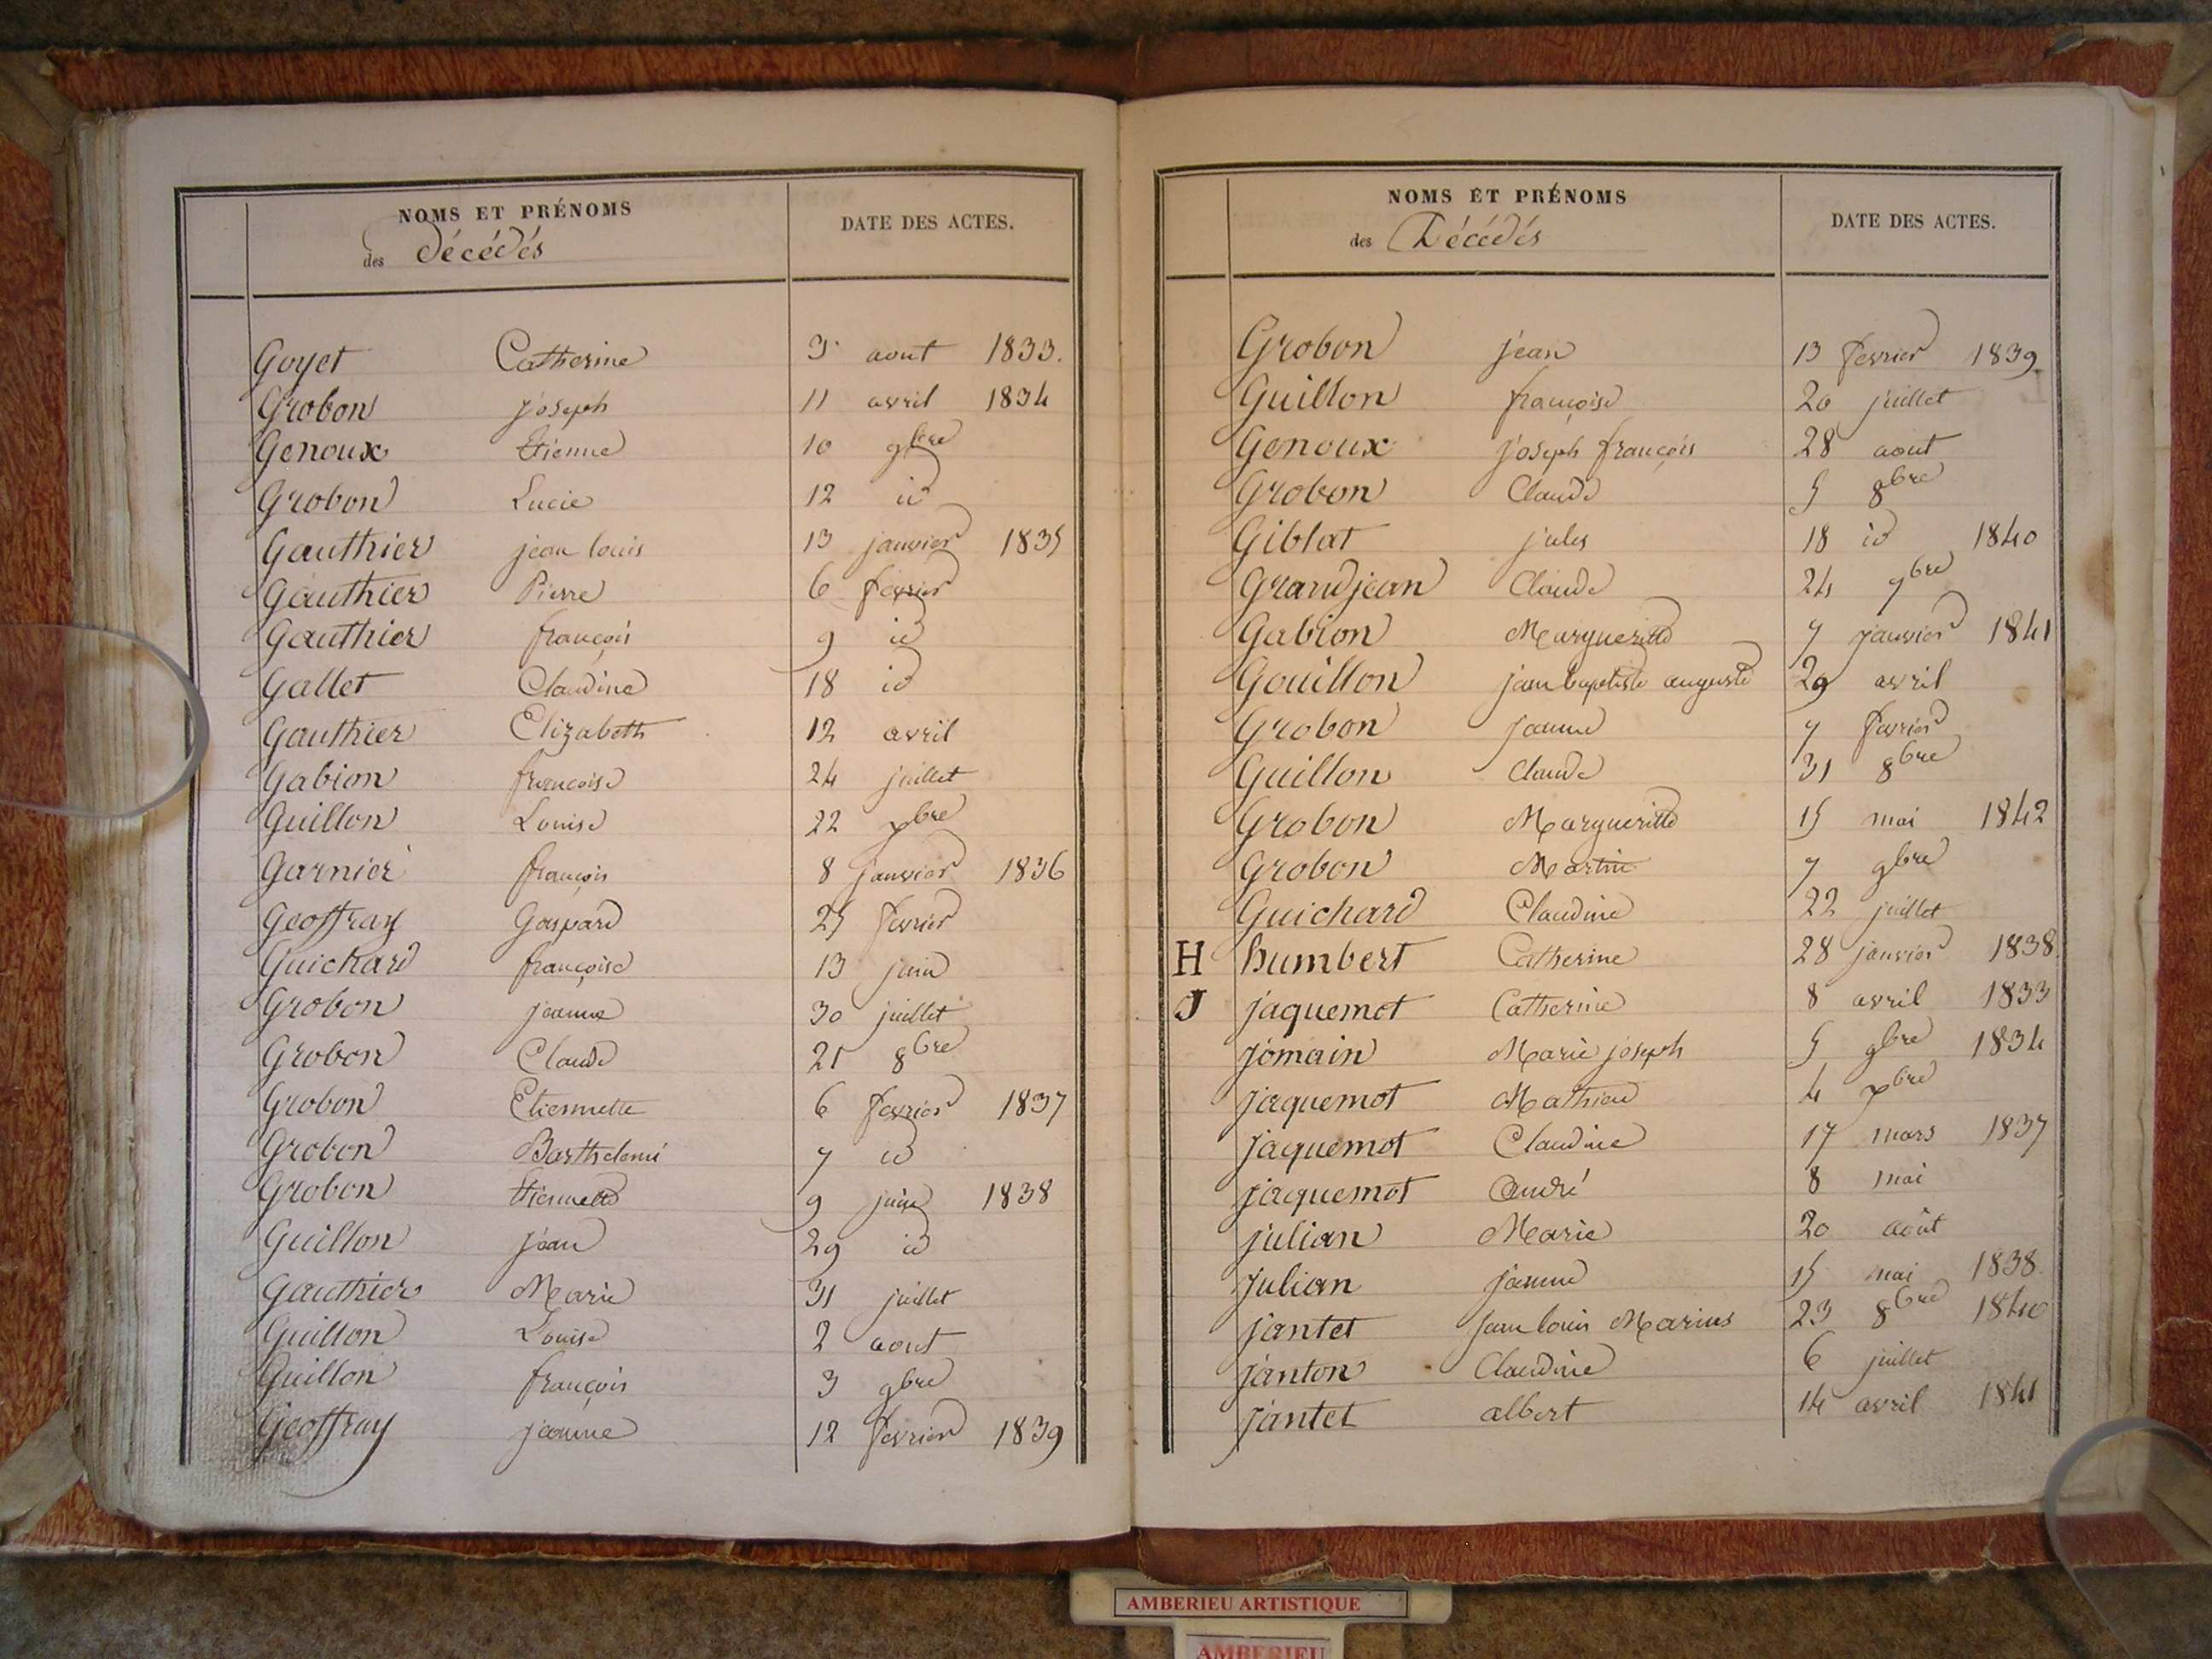 NOMS ET PRÉNOMS
des Décédés
DATE DES ACTES.
Goyet Catherine 3 aout 1833.
Grobon joseph 11 avril 1834
Genoux Etienne 10 9bre
Grobon Lucie 12 id
Gauthier jean louis 13 janvier 1835
Gauthier Pierre 6 fevrier
Gauthier françois 9 id
Gallet Claudine 18 id
Gauthier Elizabeth 12 avril
Gabion francoise 24 juillet
Guillon Louise 22 xbre
Garnier françois 8 janvier 1836
Geoffray Gaspard 25 fevrier
Guichard françoise 13 juin
Grobon jeanne 30 juillet
Grobon Claude 21 8bre
Grobon Etiennette 6 fevrier 1837
Grobon Barthelemi 7 id
Grobon Etiennette 9 juin 1838
Guillon jean 29 id
Gauthier Marie 31 juillet
Guillon Louise 2 aout
Guillon françois 3 9bre
Geoffray jeanne 12 fevrier 1839
NOMS ET PRÉNOMS
des Décédés
DATE DES ACTES.
Grobon jean 13 fevrier 1839
Guillon françoise 20 juillet
Genoux joseph françois 28 aout
Grobon Claude 5 8bre
Giblat jules 18 id 1840
Grandjean Claude 24 7bre
Gabion Margueritte 7 janvier 1841
Gouillon jean baptiste auguste 29 avril
Grobon jeanne 7 fevrier
Guillon Claude 31 8bre
Grobon Margueritte 15 mai 1842
Grobon Martin 7 9bre
Guichard Claudine 22 juillet
H humbert Catherine 28 janvier 1838
J jaquemot Catherine 8 avril 1833
jomain Marie joseph 5 9bre 1834
jaquemot Mathieu 4 xbre
jaquemot Claudine 17 mars 1837
jaquemot André 8 mai
julian Marie 20 août
julian jeanne 15 mai 1838
jantet jean louis Marius 23 8bre 1840
janton Claudine 6 juillet
jantet albert 14 avril 1841
AMBERIEU ARTISTIQUE
AMBERIEU